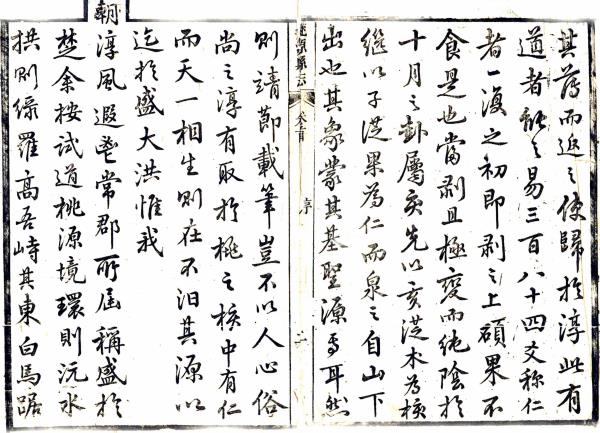 其薄而返之使歸於淳此有
道者能之易三百八十四爻称仁
者一復之初即剥之上碩果不
食是也當剥且極變而純陰於
十月之卦屬亥先以亥從木為核
継以子從果為仁而泉之自山下
出也其象蒙其基聖源焉耳然
桃源縣志
卷首
序
二
則靖節載筆豈不以人心俗
尚之淳有取於桃之核中有仁
而天一相生則在不汩其源以
迄於盛大洪惟我
朝
淳風遐鬯常郡所屬稱盛於
楚余按試道桃源境環則沅水
拱則綠羅高吾峙其東白馬踞